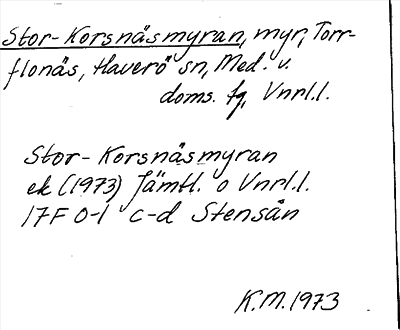 Stor-Korsnäsmyran, myr, Torr-
flonäs, Haverö sn, Med. v.
doms. fg, Vnrl.l.
Stor-Korsnäsmyran
ek (1973) Jämtl. o Vnrl.l.
17F 0-1 c-d Stensån
K.M. 1973